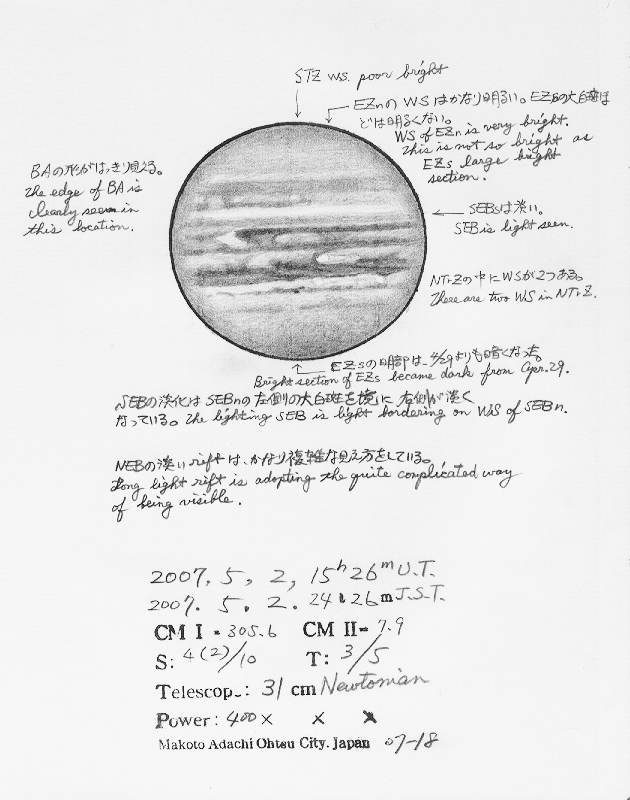 STZ WS. poor bright
EZnの WS はかなり明るい。EZsの大白斑ほ
どは明るくない。
WS of EZn is very bright.
This is not so bright as
EZs large bright
section.
BAの形がはっきり見える。
The edge of BA is
clearly seem in
this location.
SEBsは淡い。
SEB is light seen.
NTrZの中にWSが2つある。
There are two WS in NTrZ.
EZsの明部は、4/29よりも暗くなった。
Bright section of EZs became dark from Apr.29.
SEBの淡化は SEBnの左側の大白斑を境に 左側が淡く
なっている。The lighting SEB is light bordering on WS of SEBn.
NEBの淡い riftは、かなり複雑な見え方をしている。
Long light rift is adopting the quite complicated way
of being visible.
2007. 5, 2, 15h 26m U.T.
2007. 5. 2. 24 26m J.S.T.
CM I = 305.6 CM II= 7.9
S: 4(2)/10 T: 3/5
Telescop.: 31 cm Newtonian
Power: 400× × ×
Makoto Adachi Ohtsu City. Japan 07-18